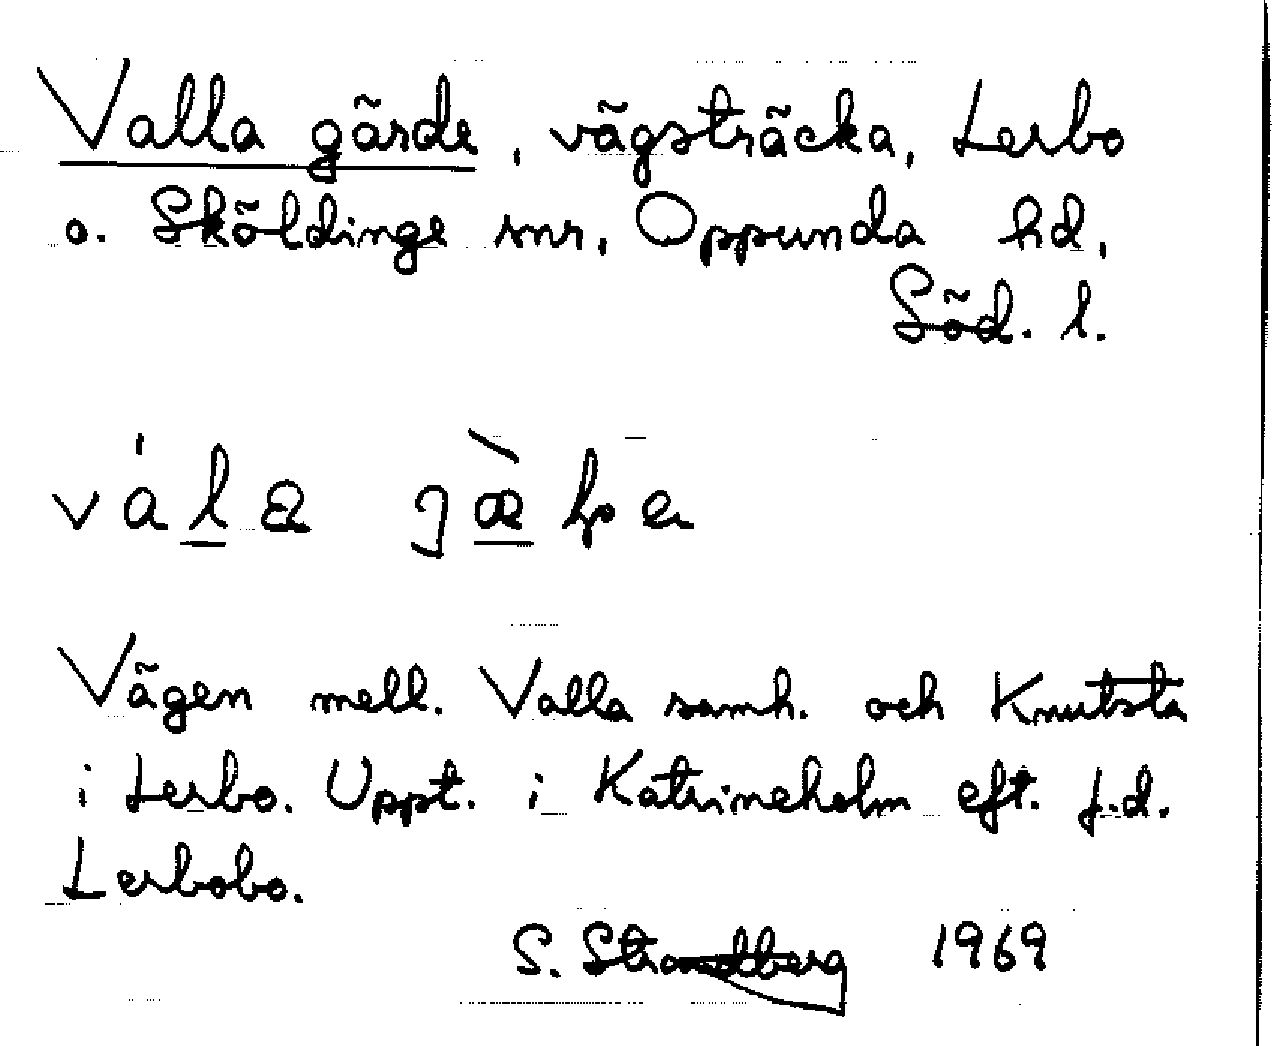 Valla gärde, vägsträcka, Lerbo
o. Sköldinge snr, Oppunda hd,
Söd. l.
Vägen mell. Valla samh. och Knutsta
i Lerbo. Uppt. i Katrineholm eft. f.d.
Lerbobo.
S. Strandberg 1969